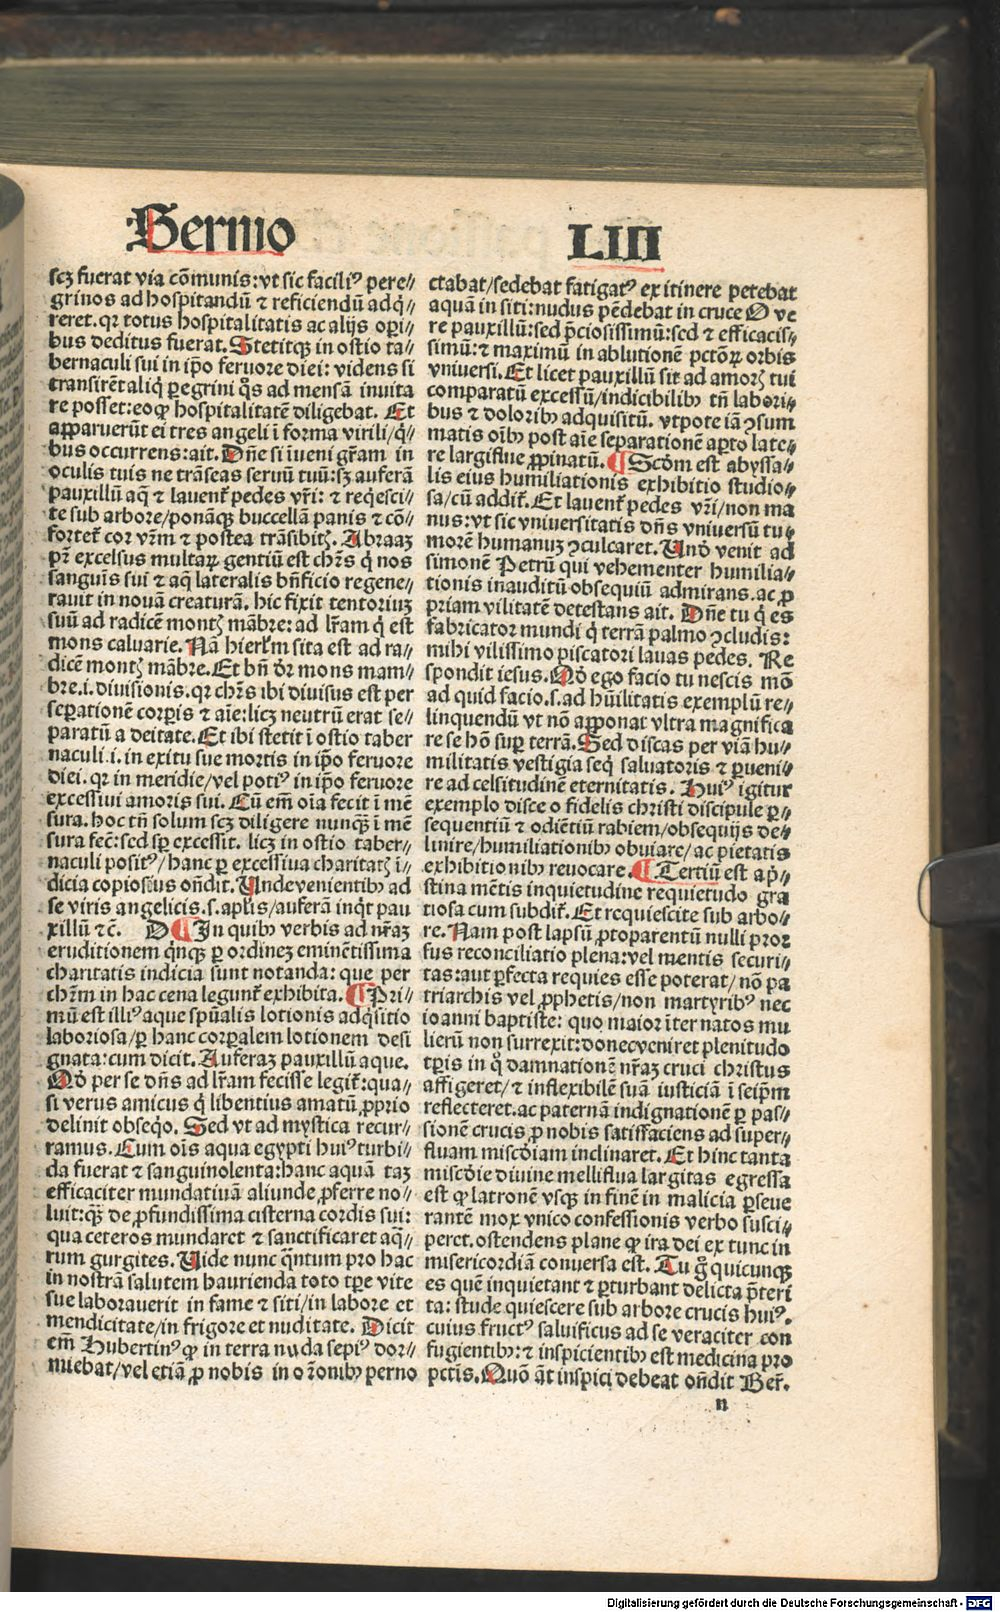 Sermo
LIII
scꝫ fuerat via cōmunis: vt sic faciliꝰ pere⸗
grinos ad hospitandū ⁊ reficiendū adq̇⸗
reret. qꝛ totus hospitalitatis ac alijs oꝑi⸗
bus deditus fuerat. Stetitqꝫ in ostio ta⸗
bernaculi sui in ip̄o feruore diei: videns si
transirēt aliq̇ ꝑegrini q̊s ad mensā inuita
re posset: eo ꝙ hospitalitatē diligebat. Et
apparuerūt ei tres angeli ī forma virili/q̇⸗
bus occurrens: ait. Dn̄e si īueni gr̄am in
oculis tuis ne trāseas seruū tuū: sꝫ auferā
pauxillū aq̄ ⁊ lauent̄ pedes vr̄i: ⁊ req̇esci⸗
te sub arbore/ponāqꝫ buccellā panis ⁊ cō⸗
fortet̄ cor vr̄m ⁊ postea trāsibitꝭ. Abraaꝫ
pr̄ excelsus multaꝝ gentiū est chr̄s q̇ nos
sanguīs sui ⁊ aq̄ lateralis bn̄ficio regene⸗
rauit in nouā creaturā. hic fixit tentoriuꝫ
suū ad radicē montꝭ mābre: ad lr̄am q̇ est
mons caluarie. Nā hierl̄m sita est ad ra⸗
dicē montꝭ mābre. Et bn̄ dr̄ mons mam⸗
bre.i. diuisionis. qꝛ chr̄s ibi diuisus est per
seꝑationē corꝑis ⁊ aīe: licꝫ neutrū erat se⸗
paratū a deitate. Et ibi stetit ī ostio taber
naculi.i. in exitu sue mortis in ip̄o feruore
diei. qꝛ in meridie/vel potiꝰ in ip̄o feruore
excessiui amoris sui. Cū em̄ oīa fecit ī mē
sura. hoc tn̄ solum scꝫ diligere nunqꝫ̄ ī mē
sura fec̄: sed sꝑ excessit. licꝫ in ostio taber⸗
naculi positꝰ/hanc ꝑ excessiua charitatꝭ ī⸗
dicia copiosius on̄dit. Undevenientibꝫ ad
se viris angelicis.s. apl̄is/auferā inq̇t pau
xillū ⁊c̄. D ¶ In quibꝫ verbis ad nr̄aꝫ
eruditionem q̇nqꝫ ꝑ ordineꝫ eminētissima
charitatis indicia sunt notanda: que per
chr̄m in hac cena legunt̄ exhibita. ¶ Pri⸗
mū est illiꝰ aque spūalis lotionis adq̇sitio
laboriosa/ꝑ hanc corꝑalem lotionem desi
gnata: cum dicit. Auferaꝫ pauxillū aque.
Qd̓ per se dn̄s ad lr̄am fecisse legit̄: qua⸗
si verus amicus q̇ libentius amatū ꝓprio
delinit obseq̇o. Sed vt ad mystica recur⸗
ramus. Cum oīs aqua egypti huiꝰ turbi⸗
da fuerat ⁊ sanguinolenta: hanc aquā taꝫ
efficaciter mundatiuā aliunde ꝓferre no⸗
luit: qꝫ̄ de ꝓfundissima cisterna cordis sui:
qua ceteros mundaret ⁊ sanctificaret aq̄⸗
rum gurgites. Uide nunc q̄ntum pro hac
in nostrā salutem haurienda toto tꝑe vite
sue laborauerit in fame ⁊ siti/in labore et
mendicitate/in frigore et nuditate. Dicit
em̄ Hubertinꝰ ꝙ in terra nuda sepiꝰ dor⸗
miebat/vel etiā ꝓ nobis in or̄onibꝫ perno
ctabat/sedebat fatigatꝰ ex itinere petebat
aquā in siti: nudus pēdebat in cruce O ve
re pauxillū: sed p̄ciosissimū: sed ⁊ efficacis⸗
simū: ⁊ maximū in ablutionē pctōꝝ orbis
vniuersi. Et licet pauxillū sit ad amorꝭ tui
comparatū excessū/indicibilibꝫ tn̄ labori⸗
bus ⁊ doloribꝫ adquisitū. vtpote iā ꝯsum
matis oībꝫ post aīe separationē aꝑto late⸗
re largiflue ꝓpinatū. ¶ Scd̓m est abyssa⸗
lis eius humiliationis exhibitio studio⸗
sa/cū addit̄. Et lauent̄ pedes vr̄i/non ma
nus: vt sic vniuersitatis dn̄s vniuersū tu⸗
morē humanuꝫ ꝯculcaret. Un̄ venit ad
simonē Petrū qui vehementer humilia⸗
tionis inauditū obsequiū admirans. ac ꝓ
priam vilitatē detestans ait. Dn̄e tu q̇ es
fabricator mundi q̇ terrā palmo ꝯcludis:
mihi vilissimo piscatori lauas pedes. Re
spondit iesus. Qd̓ ego facio tu nescis mō
ad quid facio.s. ad hūilitatis exemplū re⸗
linquendū vt nō apponat vltra magnifica
re se hō suꝑ terrā. Sed discas per viā hu⸗
militatis vestigia seq̇ saluatoris ⁊ ꝑueni⸗
re ad celsitudinē eternitatis. Huiꝰ igitur
exemplo disce o fidelis christi discipule ꝑ⸗
sequentiū ⁊ odiētiū rabiem/obsequijs de⸗
linire/humiliationibꝫ obuiare/ac pietatis
exhibitionibꝫ reuocare. ¶ Tertiū est ap̄⸗
stina mētis inquietudine requietudo gra
tiosa cum subdit̄. Et requiescite sub arbo⸗
re. Nam post lapsū ꝓtoparentū nulli proꝛ
sus reconciliatio plena: vel mentis securi⸗
tas: aut ꝑfecta requies esse poterat/nō pa
triarchis vel ꝓphetis/non martyribꝰ nec
ioanni baptiste: quo maior īter natos mu
lierū non surrexit: donec veniret plenitudo
tꝑis in q̊ damnationē nr̄aꝫ cruci christus
affigeret/⁊ inflexibilē suā iusticiā ī seip̄m
reflecteret. ac paternā indignationē ꝑ pas⸗
sionē crucis ꝓ nobis satisfaciens ad super⸗
fluam misc̄diam inclinaret. Et hinc tanta
misc̄die diuine melliflua largitas egressa
est ꝙ latronē vsqꝫ in finē in malicia ꝑseue
rantē mox vnico confessionis verbo susci⸗
peret. ostendens plane ꝙ ira dei ex tunc in
misericordiā conuersa est. Tu g̊ quicunqꝫ
es quē inquietant ⁊ ꝑturbant delicta p̄teri
ta: stude quiescere sub arbore crucis huiꝰ.
cuius fructꝰ saluificus ad se veraciter con
fugientibꝫ: ⁊ inspicientibꝫ est medicina pro
pctīs. Quō āt inspici debeat on̄dit Ber̄.
n
Digitalisierung gefördert durch die Deutsche Forschungsgemeinschaft - DFG